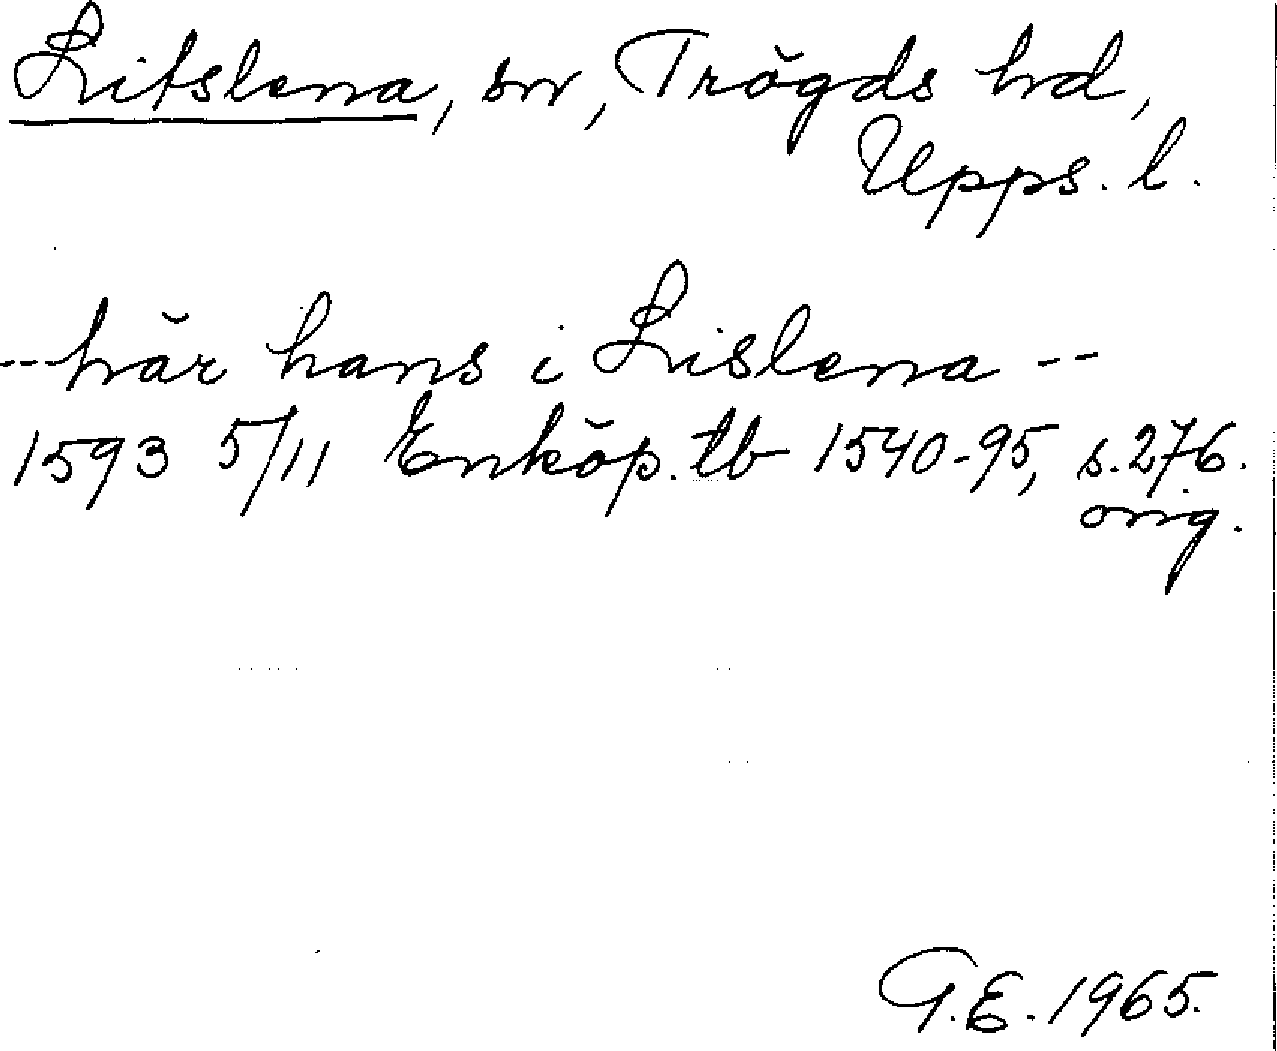 Litslena, sn, Trögds hd,
Upps. l.
--här hans i Lislena --
1593 5/11 Enköp. tb 1540-95, s. 276.
orig.
G.E. 1965.